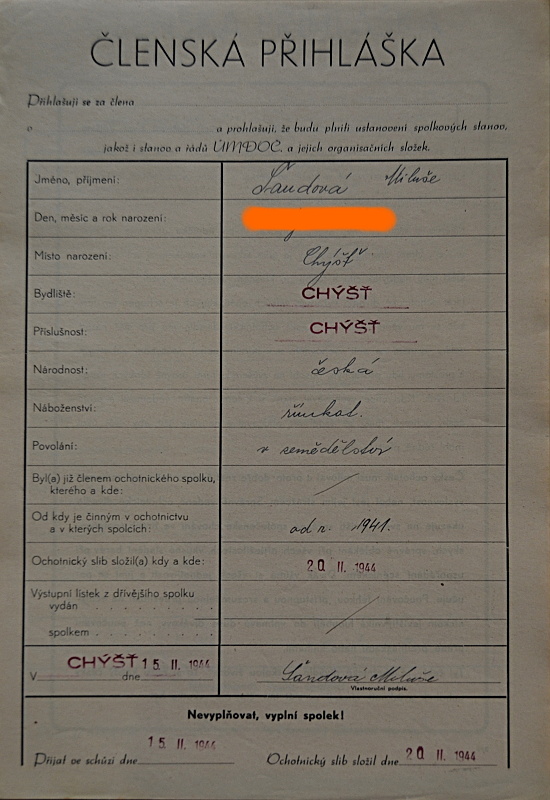 ČLENSKÁ PŘIHLÁŠKA
Přihlašuji se za člena
o a prohlašuji, že budu plniti ustanovení spolkových stanov,
jakož i stanov a řádů ÚMDOČ, a jejich organisačních složek.
Jméno, příjmení: Šandová Miluše
Den, měsíc a rok narození:
Místo narození: Chýšť
Bydliště: CHÝŠŤ
Příslušnost: CHÝŠŤ
Národnost: česká
Náboženství: římkat.
Povolání: v zemědělství
Byl(a) již členem ochotnického spolku,
kterého a kde: /
Od kdy je činným v ochotnictvu
a v kterých spolcích: od r. 1941.
Ochotnický slib složil(a) kdy a kde: 20 II. 1944
Výstupní lístek z dřívějšího spolku
vydán . . . . . . . . . .
spolkem . . . . . . . . . /
V CHÝŠŤ dne 15 II. 1944 Šandová Miluše
Vlastnoruční podpis.
Nevyplňovat, vyplní spolek!
Přijat ve schůzi dne 15 II. 1944 Ochotnický slib složil dne 20 II. 1944